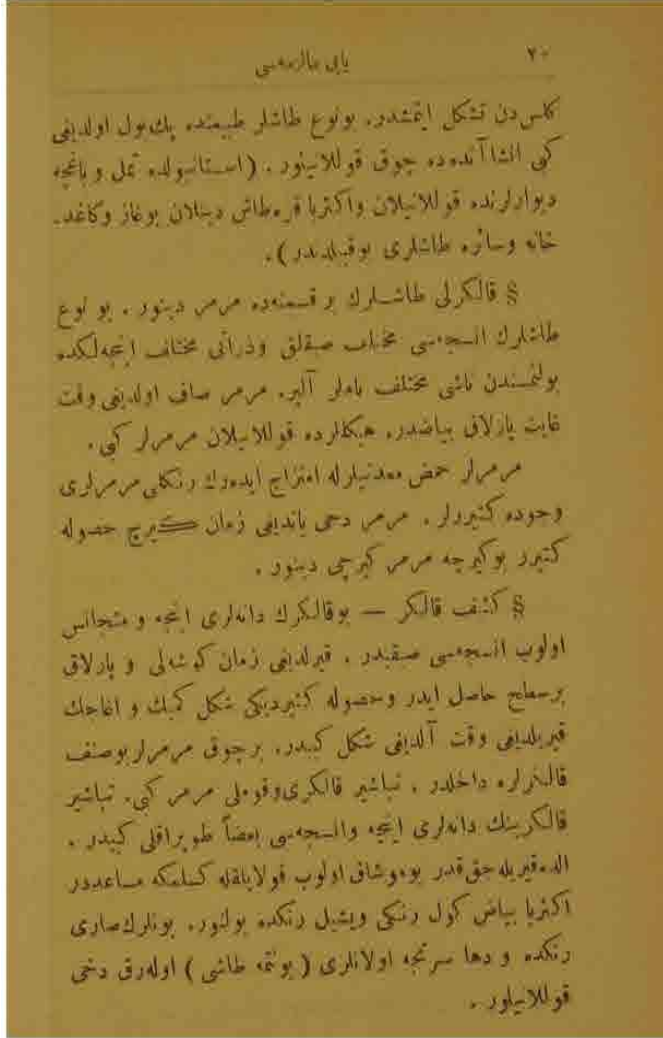 ٢٠
یاپی مالزمه‌سی
کلس‌دن تشکل ایتمشدر. بونوع طاشلر طبیعتده پك‌بول اولدیغی
کبی انشاآتده‌ده چوق قوللانیلور. (استانبولده تمل و باغچه
دیوارلرنده قوللانیلان واکثریا قره‌طاش دینلان بوغاز وکاغد-
خانه وسائره طاشلری بوقبیلدندر).
§ قالکرلی طاشلرك بر قسمنه‌ده مرمر دینور. بو نوع
طاشلرك انسجه‌سی مختلف صیقلق وذراتی مختلف اینجه‌لکده
بولنمسندن ناشی مختلف ناملر آلیر. مرمر صاف اولدیغی وقت
غایت پارلاق بیاضدر. هیکللرده قوللانیلان مرمرلر کبی.
مرمرلر حمض معدنیلرله امتزاج ایده‌رك رنکلی مرمرلری
وجوده کتیررلر. مرمر دخی یاندیغی زمان کیرچ حصوله
کتیرر بوکیرجه مرمر کیرجی دینور.
§ کثیف قالکر — بوقالکرك دانه‌لری اینجه و متجانس
اولوب انسجه‌سی صیقیدر. قیرلدیغی زمان کوشه‌لی و پارلاق
برسطح حاصل ایدر وحصوله کتیردیکی شکل کمیك و اغاجك
قیریلدیغی وقت آلدیغی شکل کبیدر. برچوق مرمرلر بوصنف
قالکرلره داخلدر. تباشیر قالکری وقومه‌لی مرمر کبی. تباشیر
قالکرینك دانه‌لری اینجه وانسجه‌سی بعضاً طوپراقلی کبیدر.
الده‌قیریله‌جق‌قدر یوموشاق اولوب قولایلقله کسلمکه مساعددر
اکثریا بیاض کول رنکی ویشیل رنکده بولنور. بونلرك صاری
رنکده و دها سرتجه اولانلری ( یونتمه طاشی ) اوله‌رق دخی
قوللانیلور.